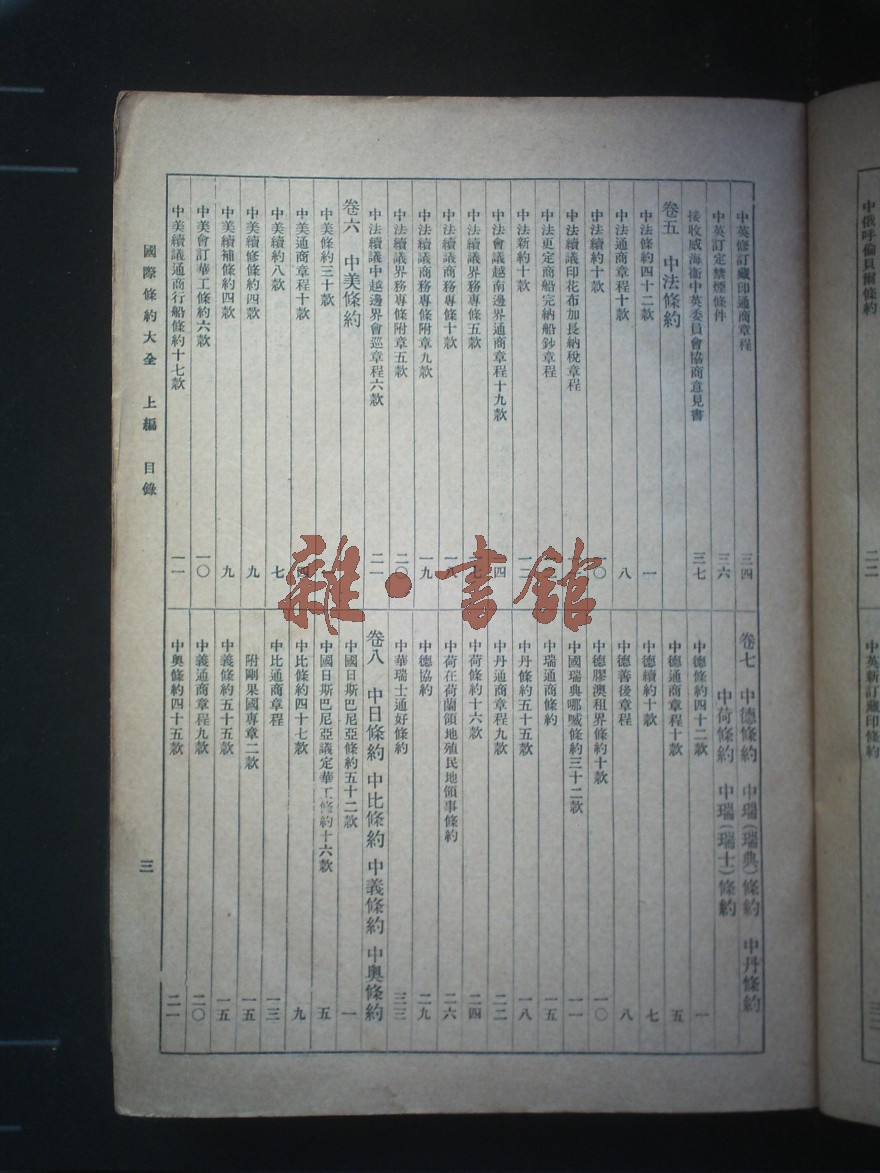 中英修訂藏印通商章程 三四
中英訂定禁煙條件 三六
接收威海衞中英委員會協商意見書 三七
卷五 中法條約
中法條約四十二款 一
中法通商章程十款 八
中法續約十款 一〇
中法續議印花布加長納稅章程
中法更定商船完納船鈔章程
中法新約十款 一二
中法會議越南邊界通商章程十九款 一四
中法續議界務專條五款 一七
中法續議商務專條十款 一八
中法續議商務專條附章九款 一九
中法續議界務專條附章五款 二〇
中法續議中越邊界會巡章程六款 二一
卷六 中美條約
中美條約三十款 一
中美通商章程十款 四
中美續約八款 七
中美續修條約四款 九
中美續補條約四款 九
中美會訂華工條約六款 一〇
中美續議通商行船條約十七款 一一
卷七 中德條約 中瑞(瑞典)條約 中丹條約
中荷條約 中瑞(瑞士)條約
中德條約四十二款 一
中德通商章程十款 五
中德續約十款 七
中德善後章程 八
中德膠澳租界條約十款 一〇
中國瑞典哪威條約三十二款 一一
中瑞通商條約 一五
中丹條約五十五款 一八
中丹通商章程九款 二二
中荷條約十六款 二四
中荷在荷蘭領地殖民地領事條約 二六
中德協約 二九
中華瑞士通好條約 三三
卷八 中日條約 中比條約 中義條約 中奧條約
中國日斯巴尼亞條約五十二款 一
中國日斯巴尼亞議定華工條約十六款 五
中比條約四十七款 九
中比通商章程 一三
附剛果國專章二款 一五
中義條約五十五款 一五
中義通商章程九款 二〇
中奧條約四十五款 二一
國際條約大全 上編 目錄 三
中俄呼倫貝爾條約 二二
中英新訂藏印條約
雜·書館